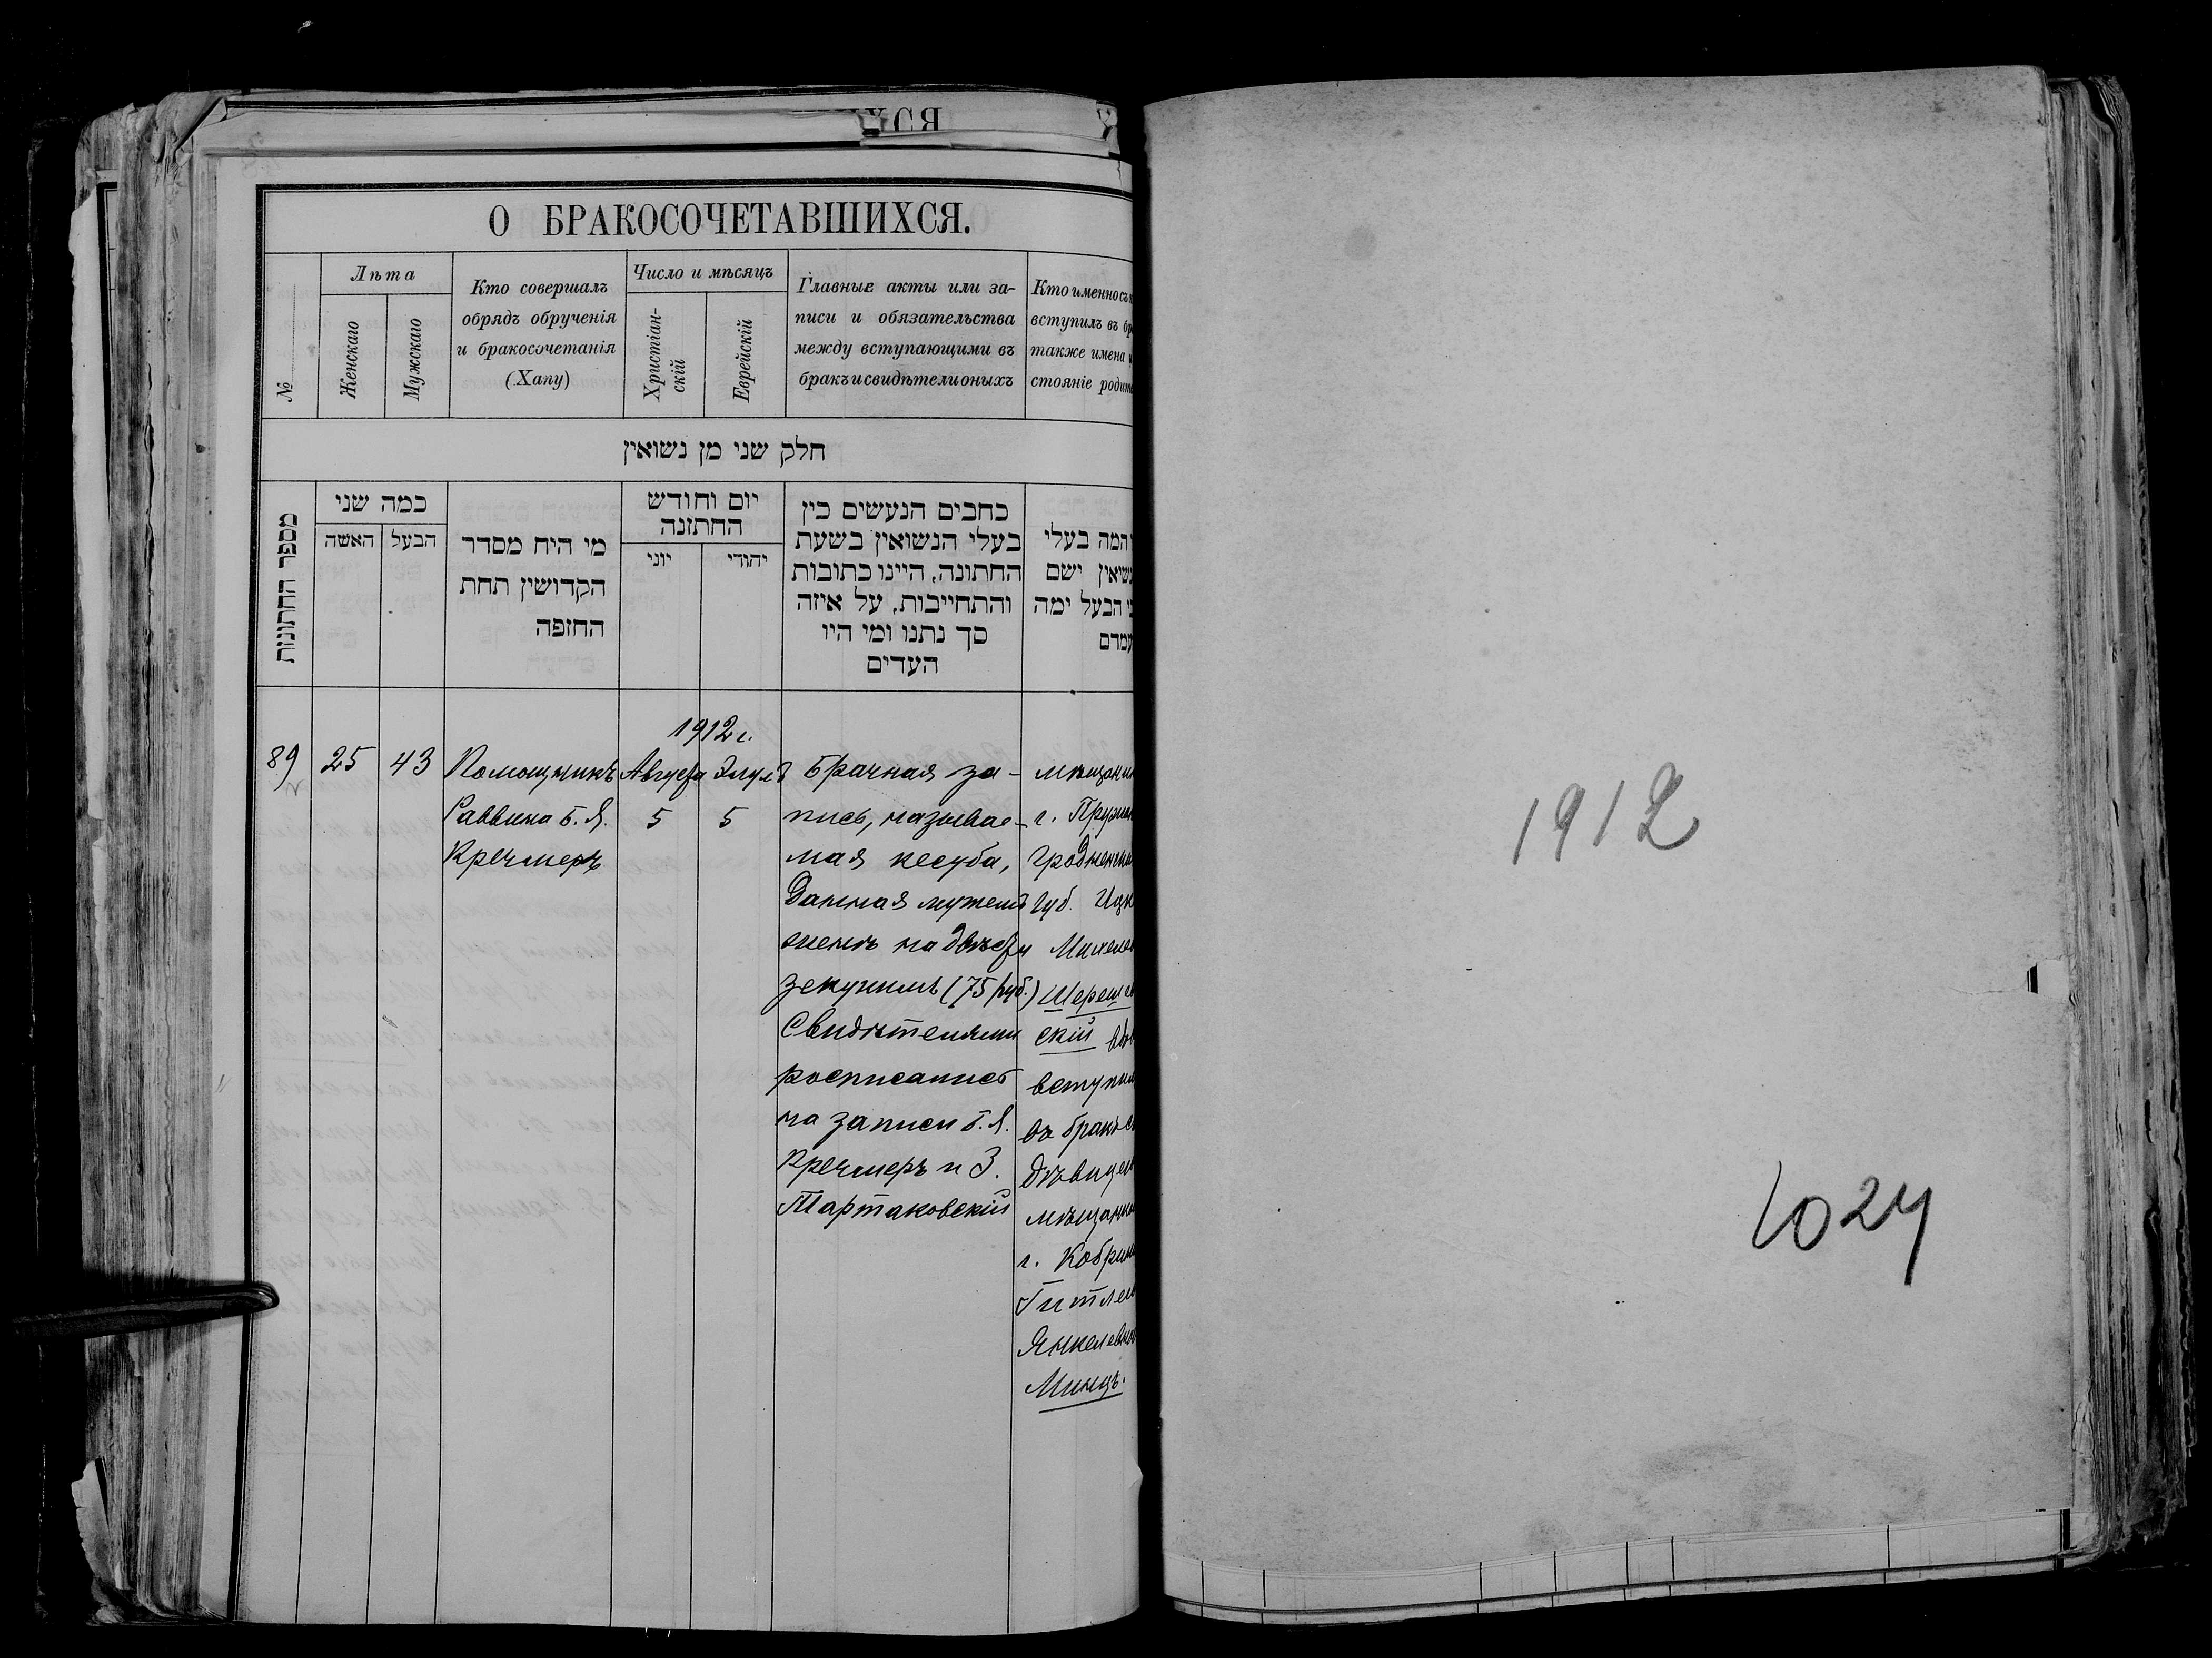 ХСЯ
О БРАКОСОЧЕТАВШИХСЯ.
№
Лѣта
Женскаго
Мужскаго
Кто совершалъ
обрядъ обрученія
и бракосочетанія
(Хапу)
Число и мѣсяцъ
Христіан-
скій
Еврейскій
Главные акты или за-
писи и обязательства
между вступающими въ
бракъ и свидѣтели оныхъ
Кто именно съ
вступилъ въ бр
также имена и
стояніе родите
חלק שני מן נשואין
מספר החתונות
כמה שני
האשה
הבעל
מי היח מסדר
הקדושין תחת
החזפה
יום וחודש
החתזנה
יוני
יהודי
כחבים הנעשים כין
בעלי הנשואין בשעת
החתונה, היינו כתובות
והתחייבות, על איזה
סך נתנו ומי היו
העדים
המה בעלי
נשואין ישם
הבעל ימה
עמדם
1912 г.
89
25
43
Помощникъ
Раввина Б. Я.
Кречмеръ
Августа
5
Элулъ
5
Брачная за-
пись, называе-
мая кесуба,
данная мужемъ
женѣ на двѣсти
зекукимъ (75 руб.)
Свидѣтелями
росписались
на записи Б. Я.
Кречмеръ и З.
Тартаковскій
мѣщанин
г. Пружан
Гродненск
губ. Ицк
Михелев
Шерешев
скій вдов
вступил
въ бракъ с
дѣвицею
мѣщанко
г. Кобрин
Гитлею
Янкелевно
Минцъ.
1912
1024